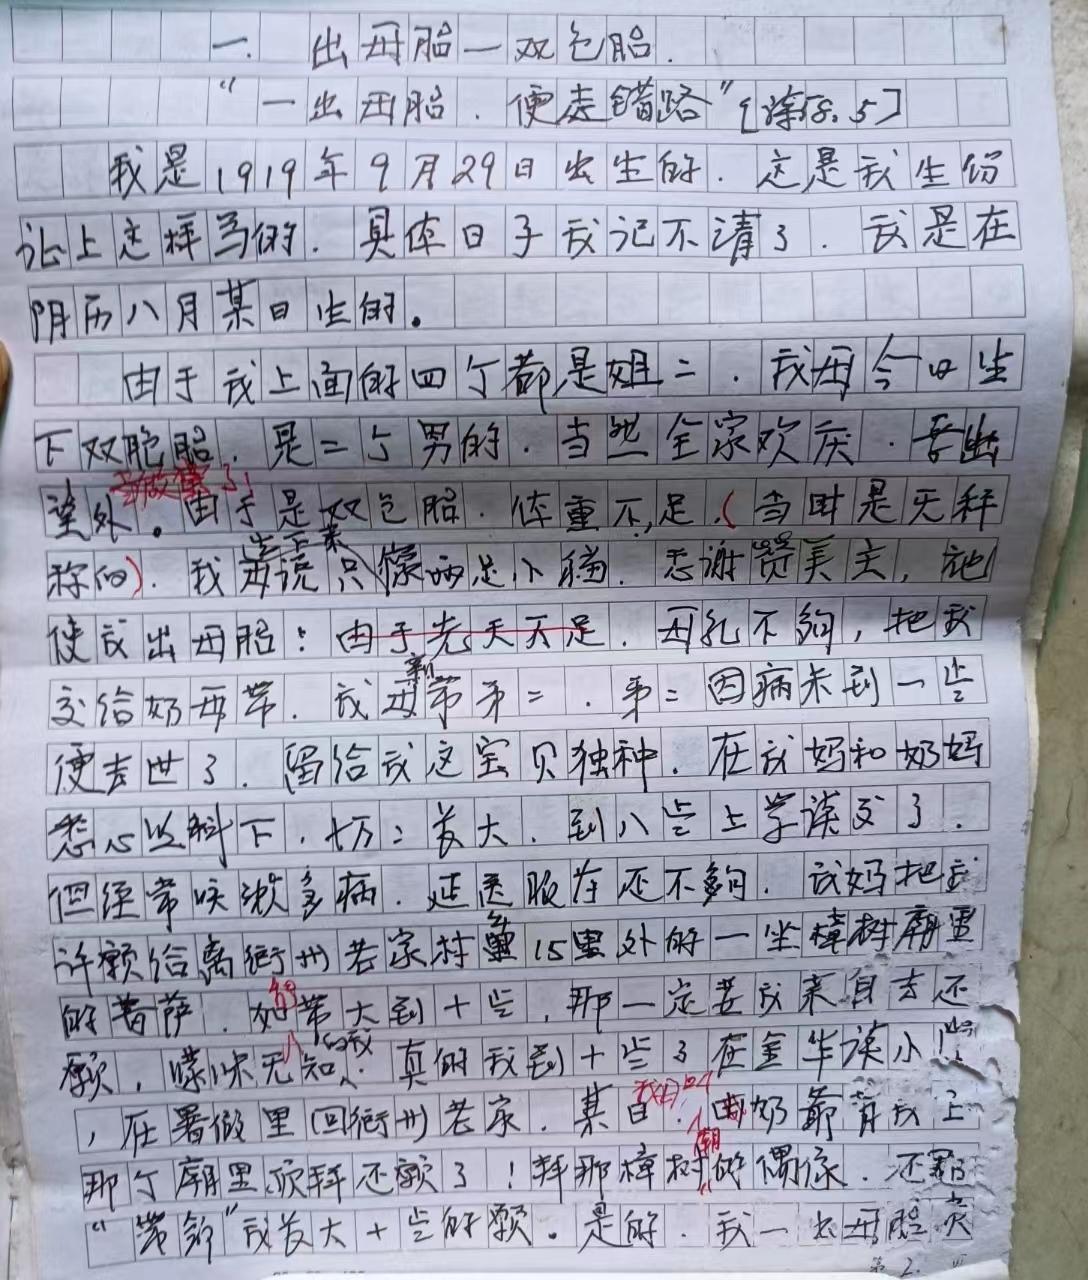 一. 出母胎—双包胎.
"一出母胎.便走错路"[诗58.5]
我是1919年9月29日出生的.这是我生份
证上这样写的.具体日子我记不清了.我是在
阴历八月某日生的。
由于我上面的四个都是姐二.我母今日生
下双胞胎.是二个男的.当然全家欢庆.喜出
望外。由于是双包胎.体重不足.(当时是无秤
称的).我母说生下来只像两只小猫.感谢赞美主,祂
使我出母胎:由于先天不足.母乳不够,把我
交给奶母带.我母亲带第二.第二因病未到一岁
便去世了.留给我这宝贝独种.在我妈和奶妈
悉心照料下.长大.到八岁上学读文了.
但经常咳嗽多病.延医服药还不够.我妈把我
许愿给离衢州老家村15里外的一坐樟树庙里
的菩萨.如能带大到十岁,那一定要我亲自去还
愿,曚昧无知的我.真的我到十岁了在金华读小学
,在暑假里回衢州老家.某日.由奶爺背我上
那个庙里.顶拜还愿了!拜那樟树庙的偶像.还
我长大十岁的愿。是的.我一出母胎
第 2.